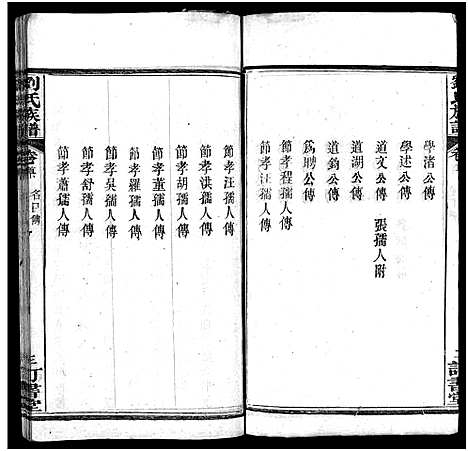 學渚公傳
學述公傳
道文公傳 張孺人附
道湖公傳
道鈞公傳
爲聘公傳
節孝程孺人傳
節孝汪孺人傳
節孝洪孺人傳
節孝胡孺人傳
節孝董孺人傳
節孝羅孺人傳
節孝吳孺人傳
節孝舒孺人傳
節孝蕭孺人傳
劉氏族譜
卷首